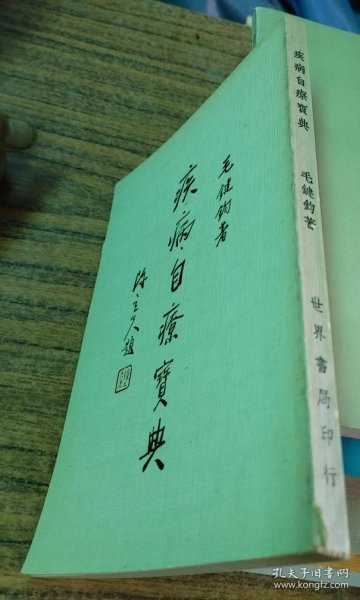 毛健鈞著
疾病自療寶典
陳立夫題
疾病自療寶典 毛健鈞著 世界書局印行
孔夫子旧书网
www.kongfz.com